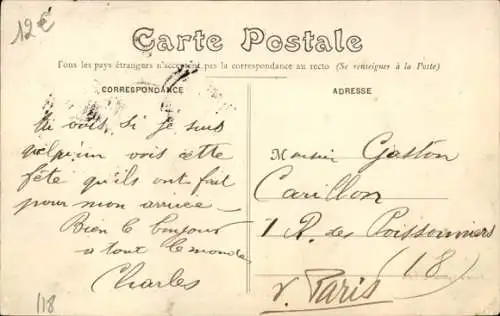 12€
Carte Postale
Tous les pays étrangers n'acceptent pas la correspondance au recto (Se renseigner à la Poste)
CORRESPONDANCE
Tu vois, si je suis
quelqu'un vois cette
fête qu'ils ont fait
pour mon arrivee
Bien le bonjour
a tout le monde
Charles
118
ADRESSE
Monsieur Gaston
Carillon
1 R. des Poissonniers
(18)
Paris